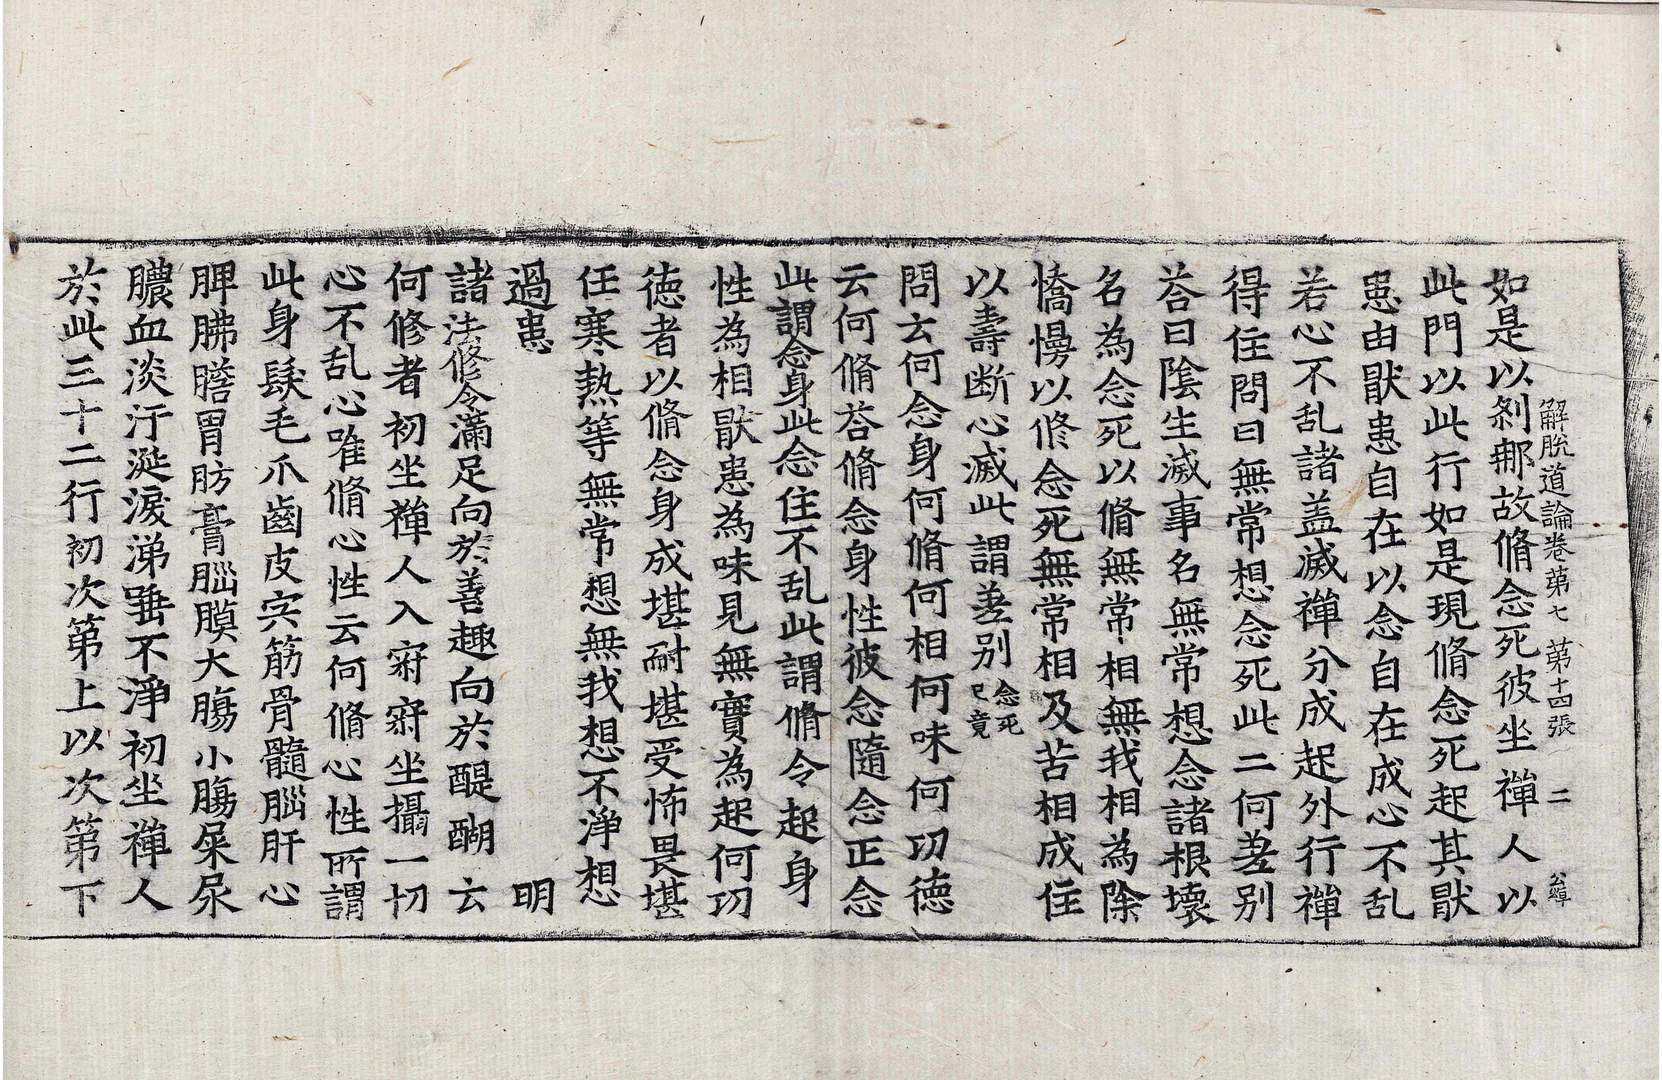 解脫道論卷第七　第十四張　二
如是以剎那故脩念死彼坐禪人以
此門以此行如是現脩念死起其猒
患由猒患自在以念自在成心不乱
若心不乱諸盖滅禪分成起外行禪
得住問曰無常想念死此二何差别
荅曰陰生滅事名無常想念諸根壞
名為念死以脩無常相無我相為除
憍慢以修念死無常相及苦相成住
以壽断心滅此謂差别念死已竟
問云何念身何脩何相何味何功德
云何脩荅脩念身性彼念隨念正念
此謂念身此念住不乱此謂脩令起身
性為相猒患為味見無實為起何功
德者以脩念身成堪耐堪受怖畏堪
任寒熱等無常想無我想不淨想
過患　明
諸法修令滿足向於善趣向於醍醐云
何修者初坐禪人入寂寂坐攝一切
心不乱心唯脩心性云何脩心性所謂
此身髮毛爪齒皮宍筋骨髓𦛁肝心
脾胇膽胃肪膏𦛁膜大膓小膓屎尿
膿血淡汗涎淚涕唾不淨初坐禪人
於此三十二行初次第上以次第下